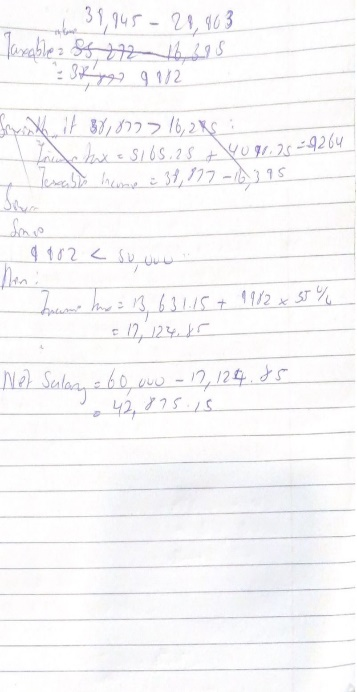 39,945 - 29,963
Taxable = 55,272 - 16,395
= 38,877 9982
if 38,877 > 16,295 :
Income tax = 5165.25 + 4098.75 = 9264
Taxable income = 38,877 - 16,395
Since
9982 < 50,000
Then:
Income tax = 13,631.15 + 9982 x 35%
= 17,124.85
Net Salary = 60,000 - 17,124.85
= 42,875.15